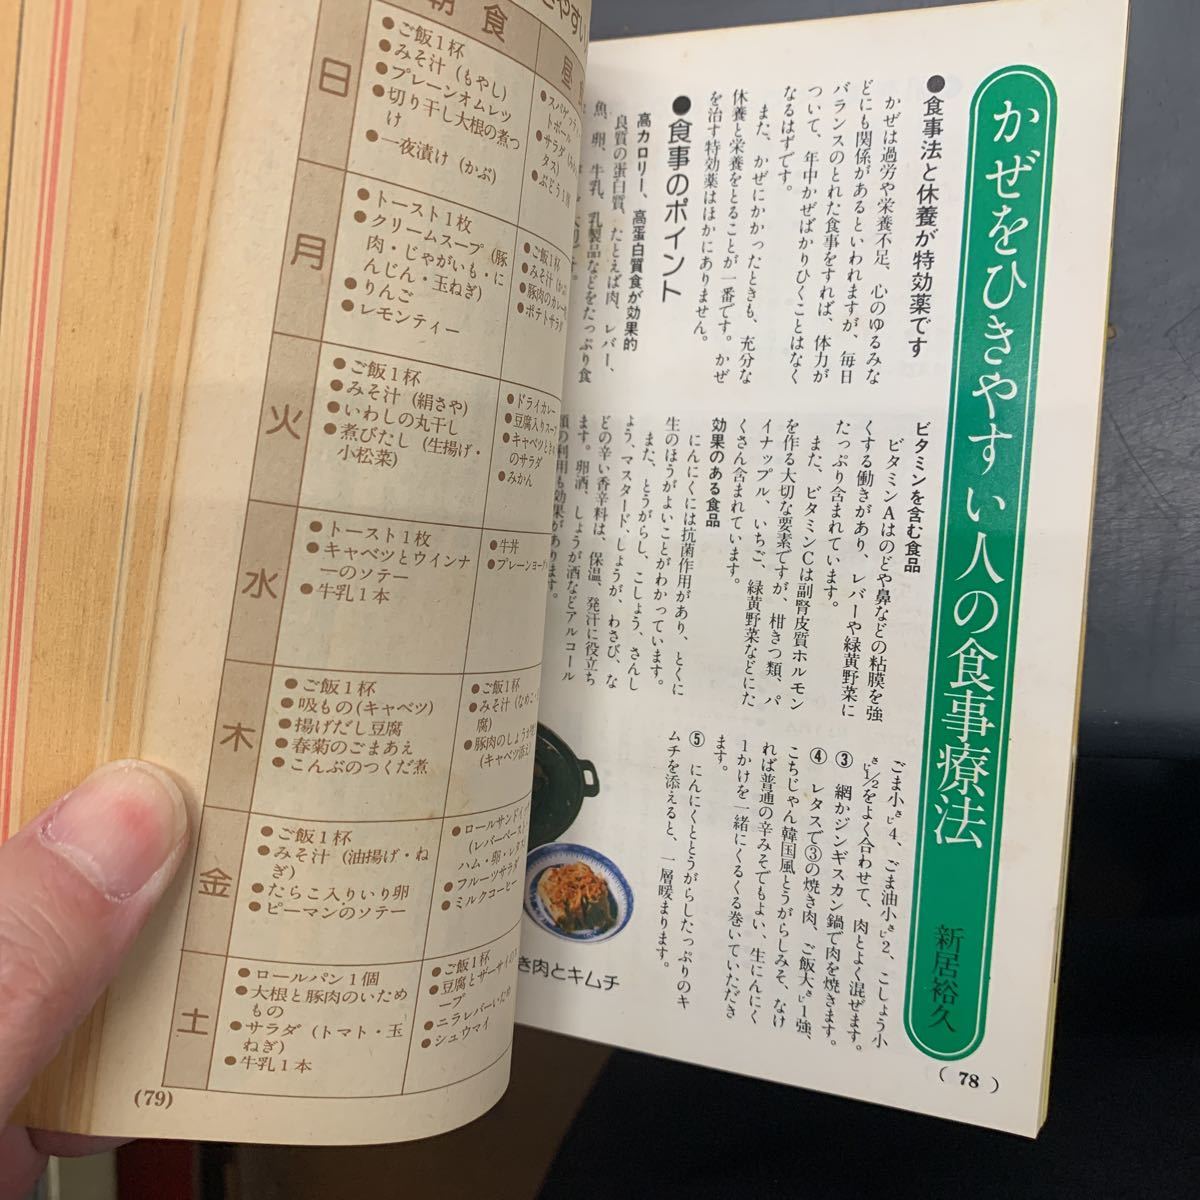 かぜをひきやすい人の食事療法
新居裕久
●食事法と休養が特効薬です
かぜは過労や栄養不足、心のゆるみな
どにも関係があるといわれますが、毎日
バランスのとれた食事をすれば、体力が
ついて、年中かぜばかりひくことはなく
なるはずです。
また、かぜにかかったときも、充分な
休養と栄養をとることが一番です。かぜ
を治す特効薬はほかにありません。
●食事のポイント
高カロリー、高蛋白質食が効果的
良質の蛋白質、たとえば肉、レバー、
魚、卵、牛乳、乳製品などをたっぷり食
ビタミンを含む食品
ビタミンAはのどや鼻などの粘膜を強
くする働きがあり、レバーや緑黄野菜に
たっぷり含まれています。
また、ビタミンCは副腎皮質ホルモン
を作る大切な要素ですが、柑きつ類、パ
イナップル、いちご、緑黄野菜などにた
くさん含まれています。
効果のある食品
にんにくには抗菌作用があり、とくに
生のほうがよいことがわかっています。
また、とうがらし、こしょう、さんし
ょう、マスタード、しょうが、わさび、な
どの辛い香辛料は、保温、発汗に役立ち
ます。卵酒、しょうが酒などアルコール
類の利用も効果があります。
ごま小さじ4、ごま油小さじ2、こしょう小
さじ1/2をよく合わせて、肉とよく混ぜます。
③ 網かジンギスカン鍋で肉を焼きます。
④ レタスで③の焼き肉、ご飯大さじ1強、
こちじゃん韓国風とうがらしみそ、なけ
れば普通の辛みそでもよい、生にんにく
1かけを一緒にくるくる巻いていただき
ます。
⑤ にんにくととうがらしたっぷりのキ
ムチを添えると、一層暖まります。
き肉とキムチ
(78)
やすい
朝食
昼食
日
●ご飯1杯
●みそ汁(もやし)
●プレーンオムレツ
●切り干し大根の煮つ
け
●一夜漬け(かぶ)
●スパゲッティ
トボール
●サラダ
タス)
●ぶどう1
月
●トースト1枚
●クリームスープ(豚
肉・じゃがいも・に
んじん・玉ねぎ)
●りんご
●レモンティー
●ご飯1杯
●みそ汁
●豚肉のカレー
●ポテトサラダ
火
●ご飯1杯
●みそ汁(絹さや)
●いわしの丸干し
●煮びたし(生揚げ・
小松菜)
●ドライカレー
●豆腐入りスープ
●キャベツと
のサラダ
●みかん
水
●トースト1枚
●キャベツとウインナ
ーのソテー
●牛乳1本
●牛丼
●プレーンヨー
木
●ご飯1杯
●吸もの(キャベツ)
●揚げだし豆腐
●春菊のごまあえ
●こんぶのつくだ煮
●ご飯1杯
●みそ汁(なめこ
腐)
●豚肉のしょうが
(キャベツ添え)
金
●ご飯1杯
●みそ汁(油揚げ・ね
ぎ)
●たらこ入りいり卵
●ピーマンのソテー
●ロールサンドイッ
(レバーペースト
ハム・卵・レタス
●フルーツサラダ
●ミルクコーヒー
土
●ロールパン1個
●大根と豚肉のいため
もの
●サラダ(トマト・玉
ねぎ)
●牛乳1本
●ご飯1杯
●豆腐とザーサイの
ープ
●ニラレバーいため
●シュウマイ
(79)